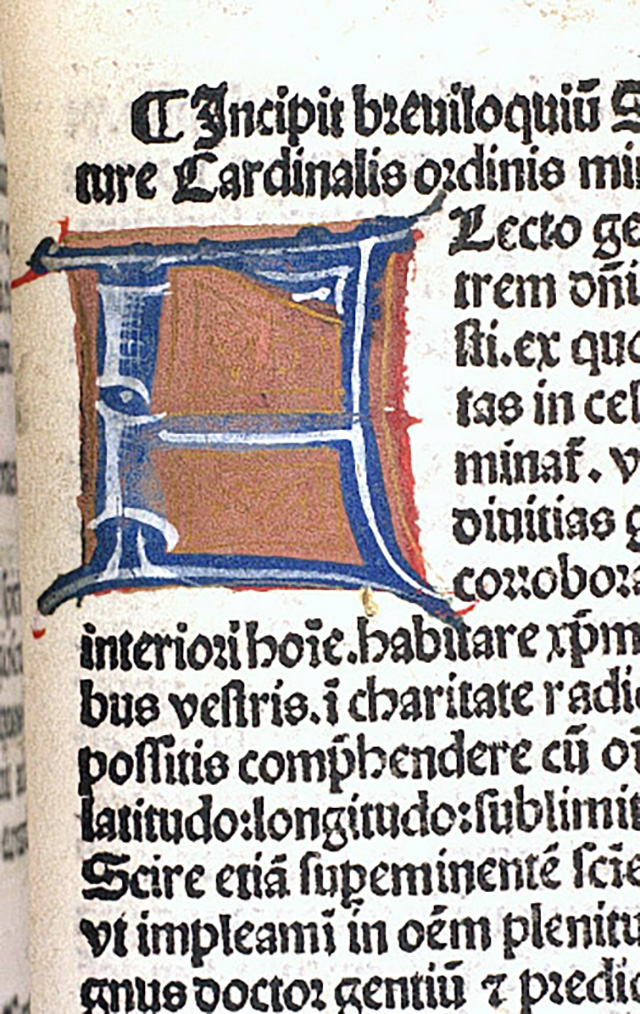 ¶ Incipit breuiloquiū S
ture Cardinalis ordinis mi
A Lecto ge
trem dn̄i
sti. ex quo
tas in cel
minat̄. v
diuitias g
corrobora
interiori hoīe. habitare xp̄m
bus vestris. ī charitate radi
possitis comp̄hendere cū oī
latitudo: longitudo: sublimit
Scire etiā supeminentē sciē
vt impleamī in oēm plenitu
gnus doctor gentiū ⁊ predic